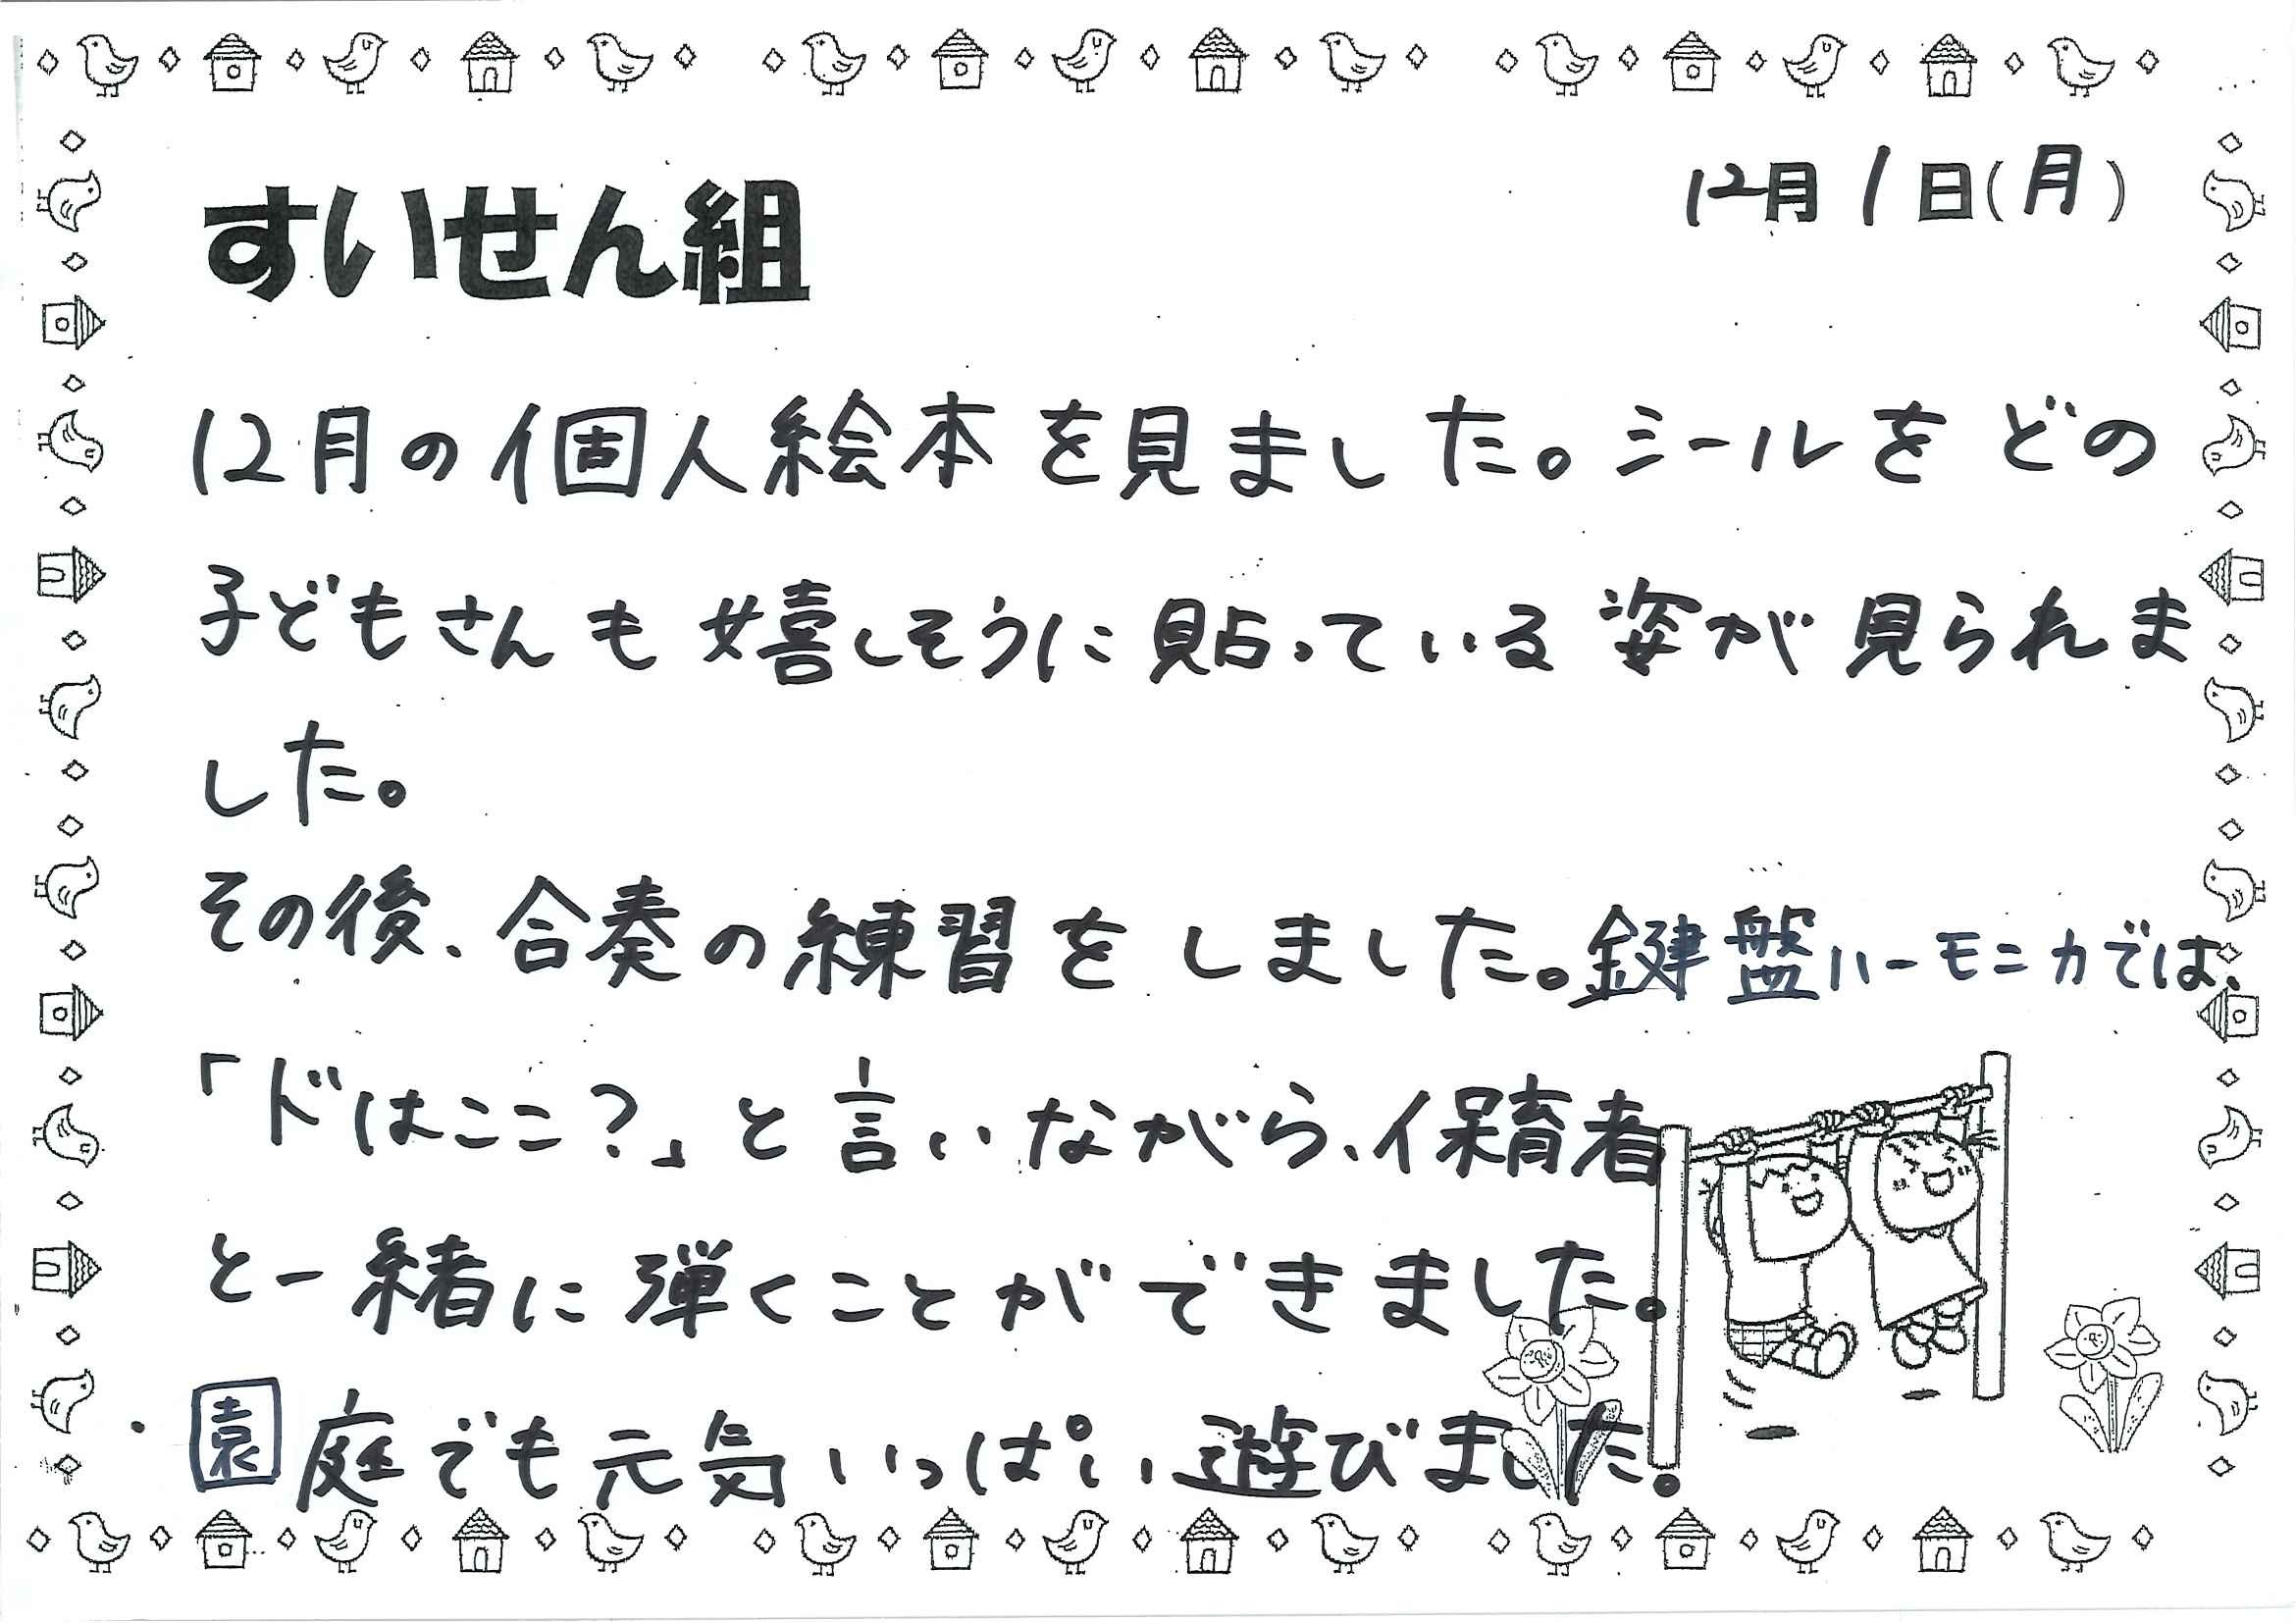 すいせん組
12月1日(月)
12月の個人絵本を見ました。シールをどの
子どもさんも嬉しそうに貼っている姿が見られま
した。
その後、合奏の練習をしました。鍵盤ハーモニカでは、
「ドはここ?」と言いながら、保育者
と一緒に弾くことができました。
園庭でも元気いっぱい遊びました。